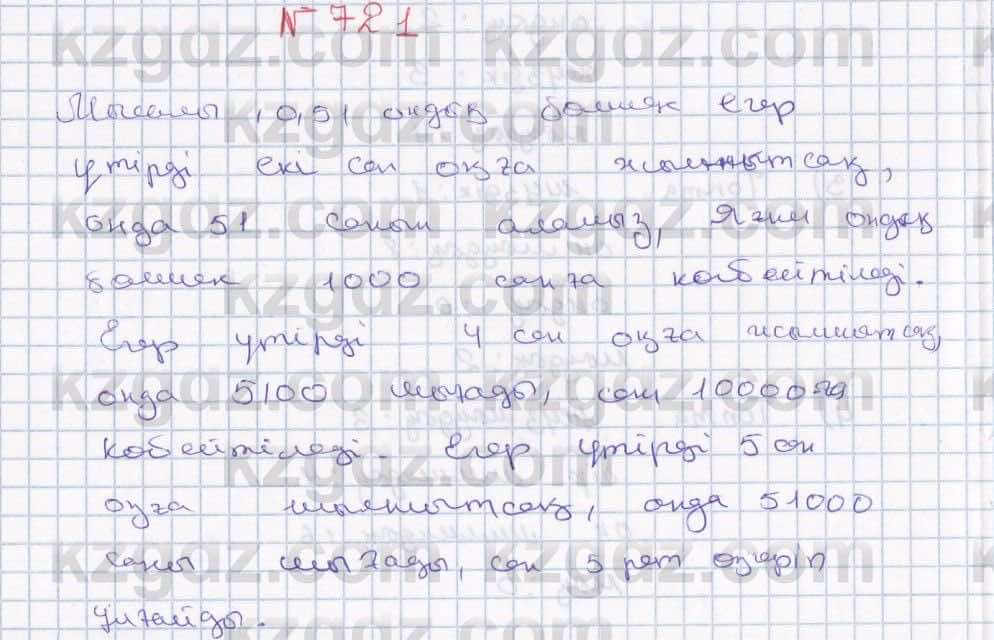 № 721
Мысалы, 0,51 ондық бөлшек егер
үтірді екі сан оңға жылжытсақ,
онда 51 санын аламыз, яғни ондық
бөлшек 1000 санға көбейтіледі.
Егер үтірді 4 сан оңға жылжытсақ,
онда 5100 шығады, сан 10000 ға
көбейтіледі. Егер үтірді 5 сан
оңға жылжытсақ, онда 51000
саны шығады, сан 5 рет өзгеріп
ұлғайды.